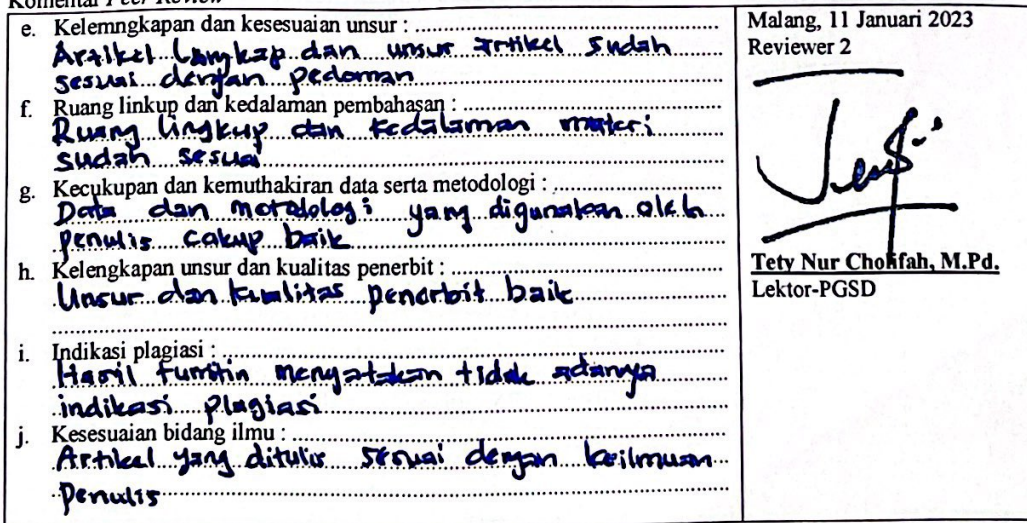 Komentar Peer Review
e. Kelemngkapan dan kesesuaian unsur :
Artikel lengkap dan unsur artikel sudah
sesuai dengan pedoman
f. Ruang linkup dan kedalaman pembahasan :
Ruang lingkup dan kedalaman materi
sudah sesuai
g. Kecukupan dan kemuthakiran data serta metodologi :
Data dan motodologi yang digunakan oleh
penulis cakup baik
h. Kelengkapan unsur dan kualitas penerbit :
Unsur dan kualitas penerbit baik
i. Indikasi plagiasi :
Hasil turnitin menyatakan tidak adanya
indikasi plagiasi
j. Kesesuaian bidang ilmu :
Artikel yang ditulis sesuai dengan keilmuan
penulis
Malang, 11 Januari 2023
Reviewer 2
Tety Nur Cholifah, M.Pd.
Lektor-PGSD